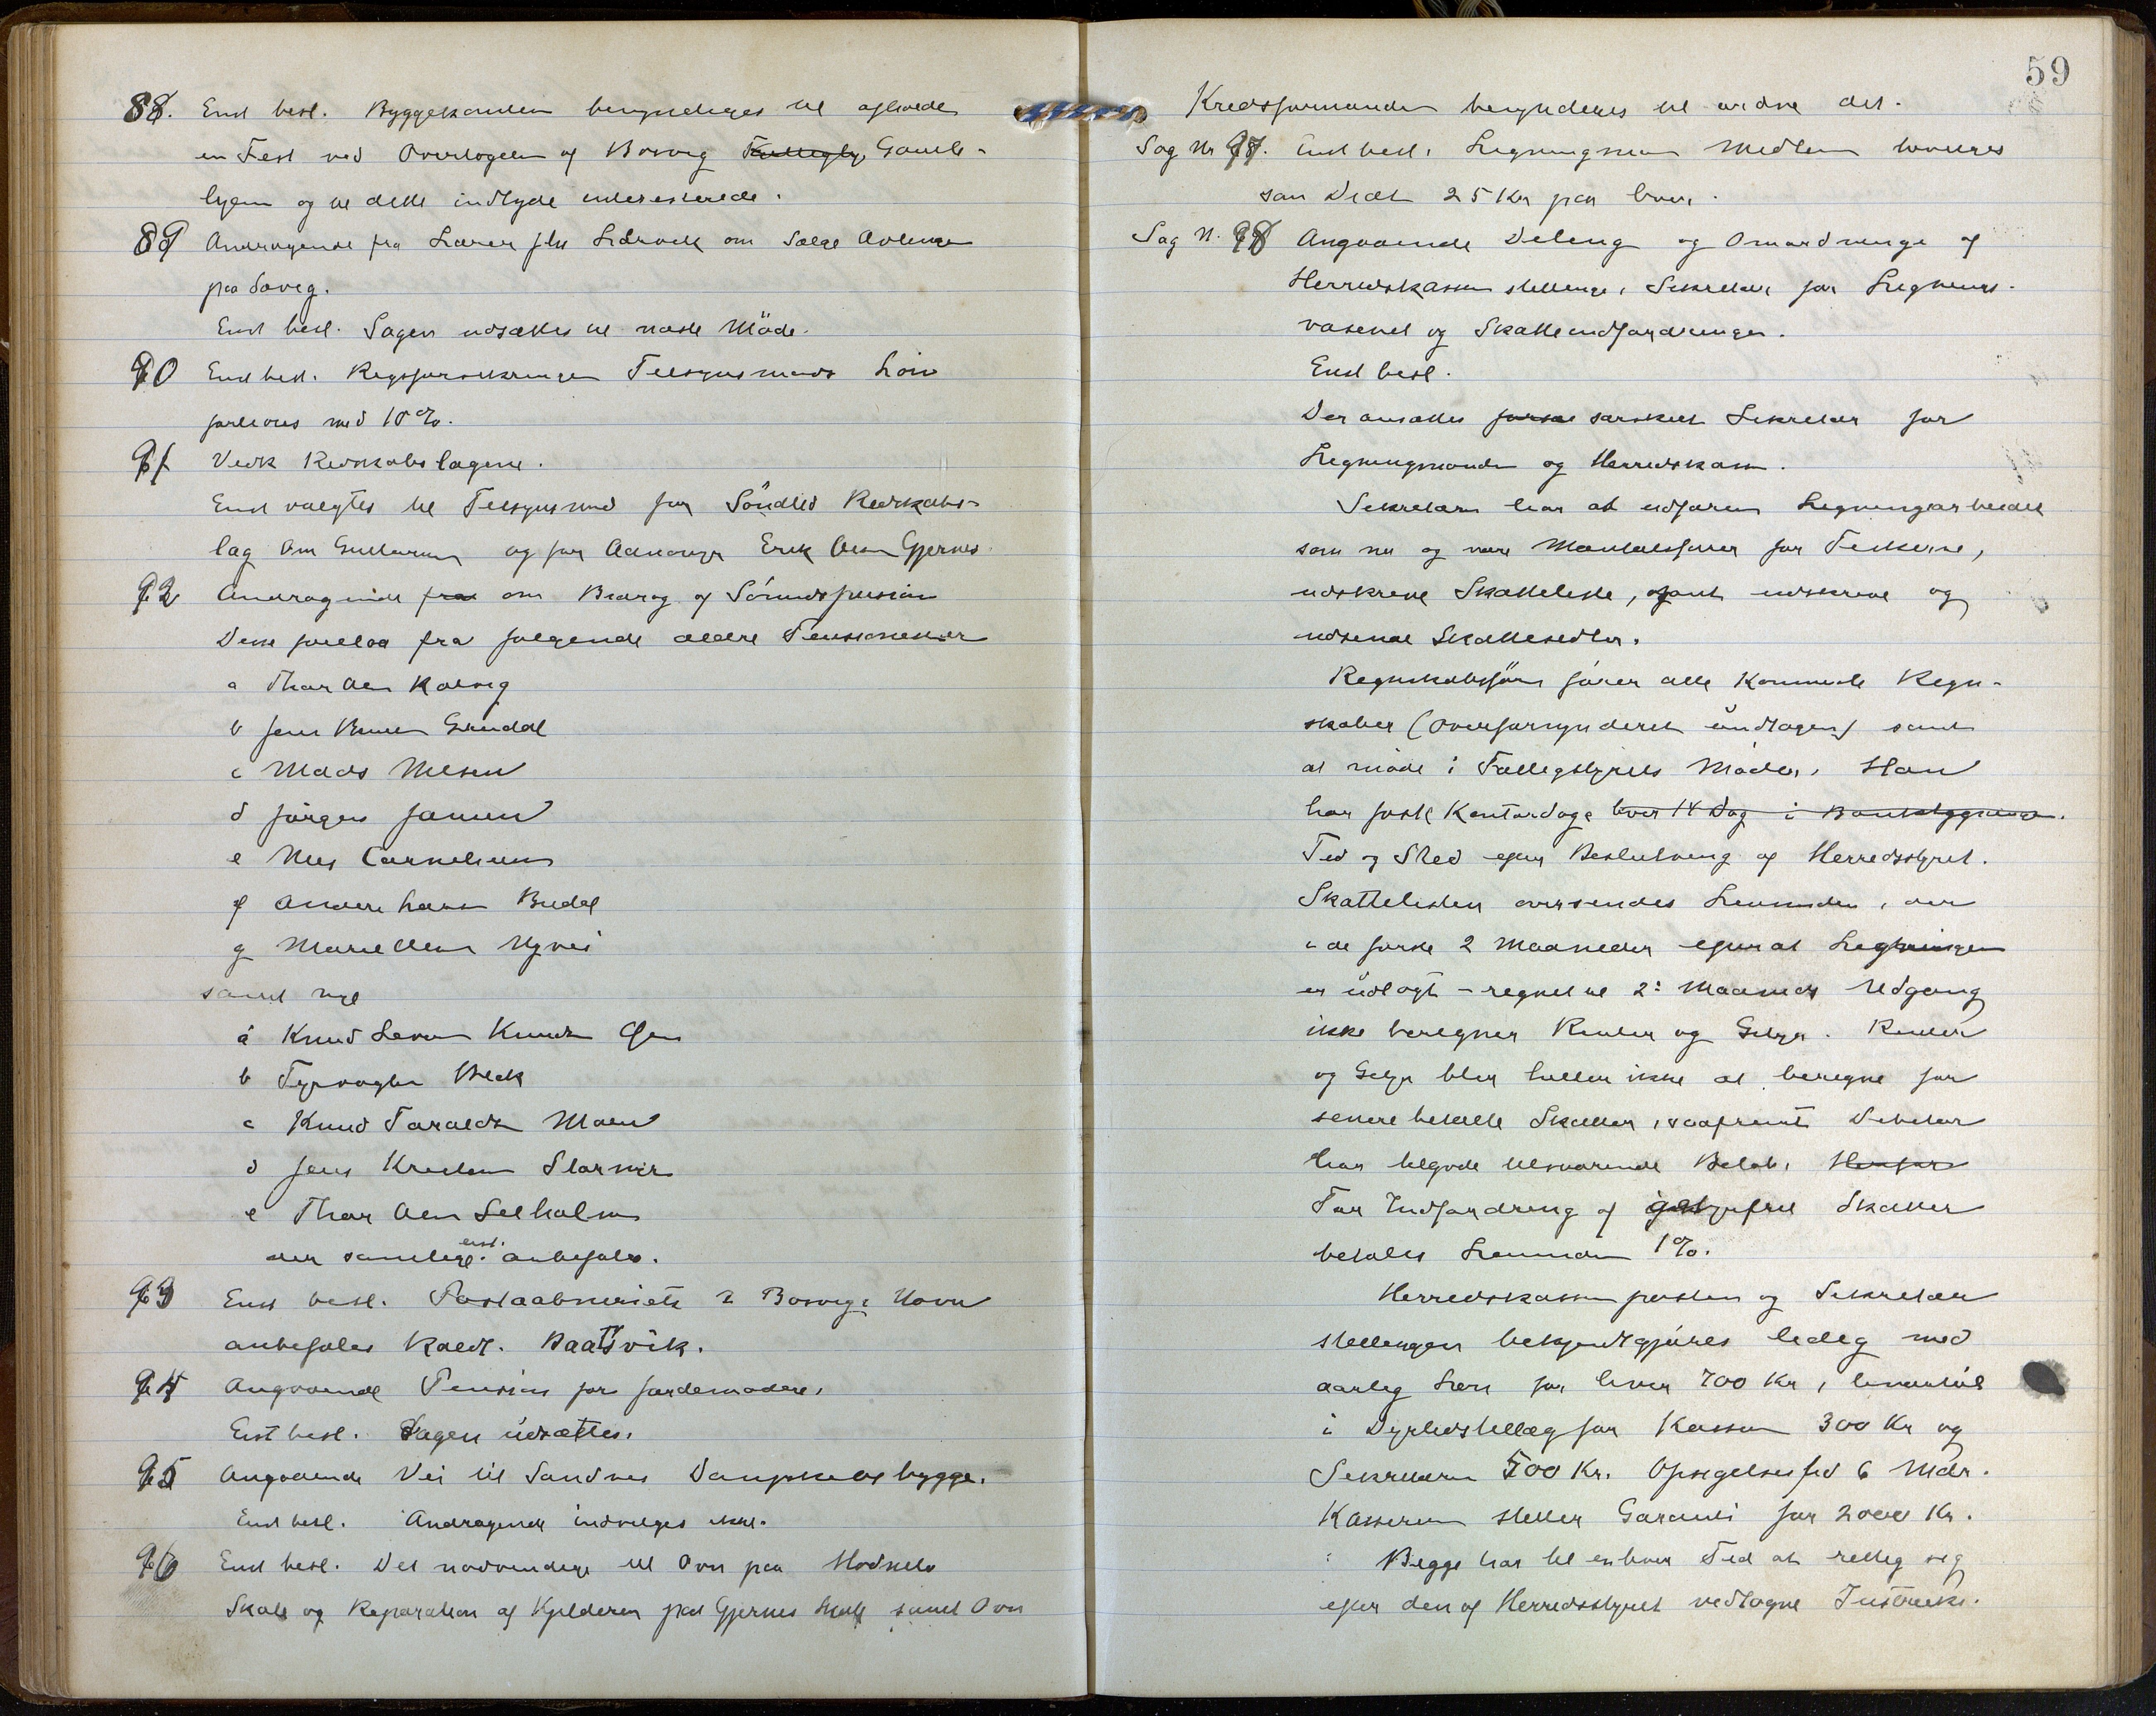 88. Enst besl. Byggekomiteen bemyndiges til afholde
en Fest ved Overtagelsen af Bosvig Gamle-
hjem og til dette indbyde interesserede.
89 Andragende fra Lærer om Salg
paa Søvig.
Enst besl. Sagen udsættes til næste Møde.
90 Enst besl. Tilsynsmænds Løn
forhøies med 10%.
91 Vedk Redskabslagene.
Enst valgtes til Tilsynsmænd for Söndled Redskabs-
lag Om og for Erik Olsen Gjernes
92 Andragende fra om Bidrag af Sømandspension
Disse forelaa fra følgende ældre Pensionister
a Thor Olsen Kalvig
b Jens
c Mads Nilsen
d Jørgen Jansen
e Nils Corneliussen
f Anders Larsen Budal
g Marie Olsen Nyvei
samt nye
a Knud Larsen Knudsen
b Fyrvogter Beck
c Knud Taraldsen Moen
d Jens Kristen
e Thor Olsen Leeholm
der samtlige enst. anbefales.
93 Enst besl. Postaabneriets i Bosvigs Havn
anbefales kaldt. Baatsvik.
94 Angaaende Pension for Jordemødre.
Enst besl. Sagen udsættes.
95 Angaaende Vei til Sandnes Dampskibsbrygge.
Enst besl. Andragendet indvilges ikke.
96 Enst besl. Det nødvendige til Ovn paa Hødnebø
Skole og Reparation af Kjelderen paa Gjernes Skole samt Ovn
59
Kredsformanden bemyndiges til ordne det.
Sag Nr 97. Enst besl. Ligningsnævndens Medlemmer bevilges
som Diæt 25 Kr paa hver.
Sag N. 98 Angaaende Deling og Omordning af
Herredskasserstillingen, Sekretær for Lignings-
væsenet og Skatteindfordringen.
Enst besl.
Der ansættes særskilt Sekretær for
Ligningsnævnden og Herredskassen.
Sekretæren har at udføre Ligningsarbeidet
som nu og være Mantalsfører for Fiskerne,
udskrive Skatteliste, samt udskrive og
udsende Skattesedler.
Regnskabsføreren fører alle Kommunale Regn-
skaber (Overformynderiet undtagen) samt
at møde i Fattigstyrets Møder. Han
har fast Kontordage hver 14 Dag i Bankbygningen.
Tid og Sted efter Beslutning af Herredsstyret.
Skattelisten oversendes Lensmanden, der
i de første 2 Maaneder efterat Ligningen
er udlagt - regnet til 2: Maaneds Udgang
ikke beregner Renter og Gebyr. Renter
og Gebyr blir heller ikke at beregne for
senere betalte Skatter, saafremt Debitor
har tilgode tilsvarende Beløb. Herfor
For Indfordring af gebyrfrie Skatter
betales Lensmanden 1%.
Herredskasserposten og Sekretær
stillingen bekjendtgjøres ledig med
aarlig Løn for hver 700 Kr, henholdsvis
i Dyrtidstillæg for Kasseren 300 Kr og
Sekretæren 500 Kr. Opsigelsesfrist 6 Mdr.
Kassereren stiller Garanti for 2000 Kr.
Begge har til enhver Tid at rette sig
efter den af Herredsstyret vedtagne Instruks.